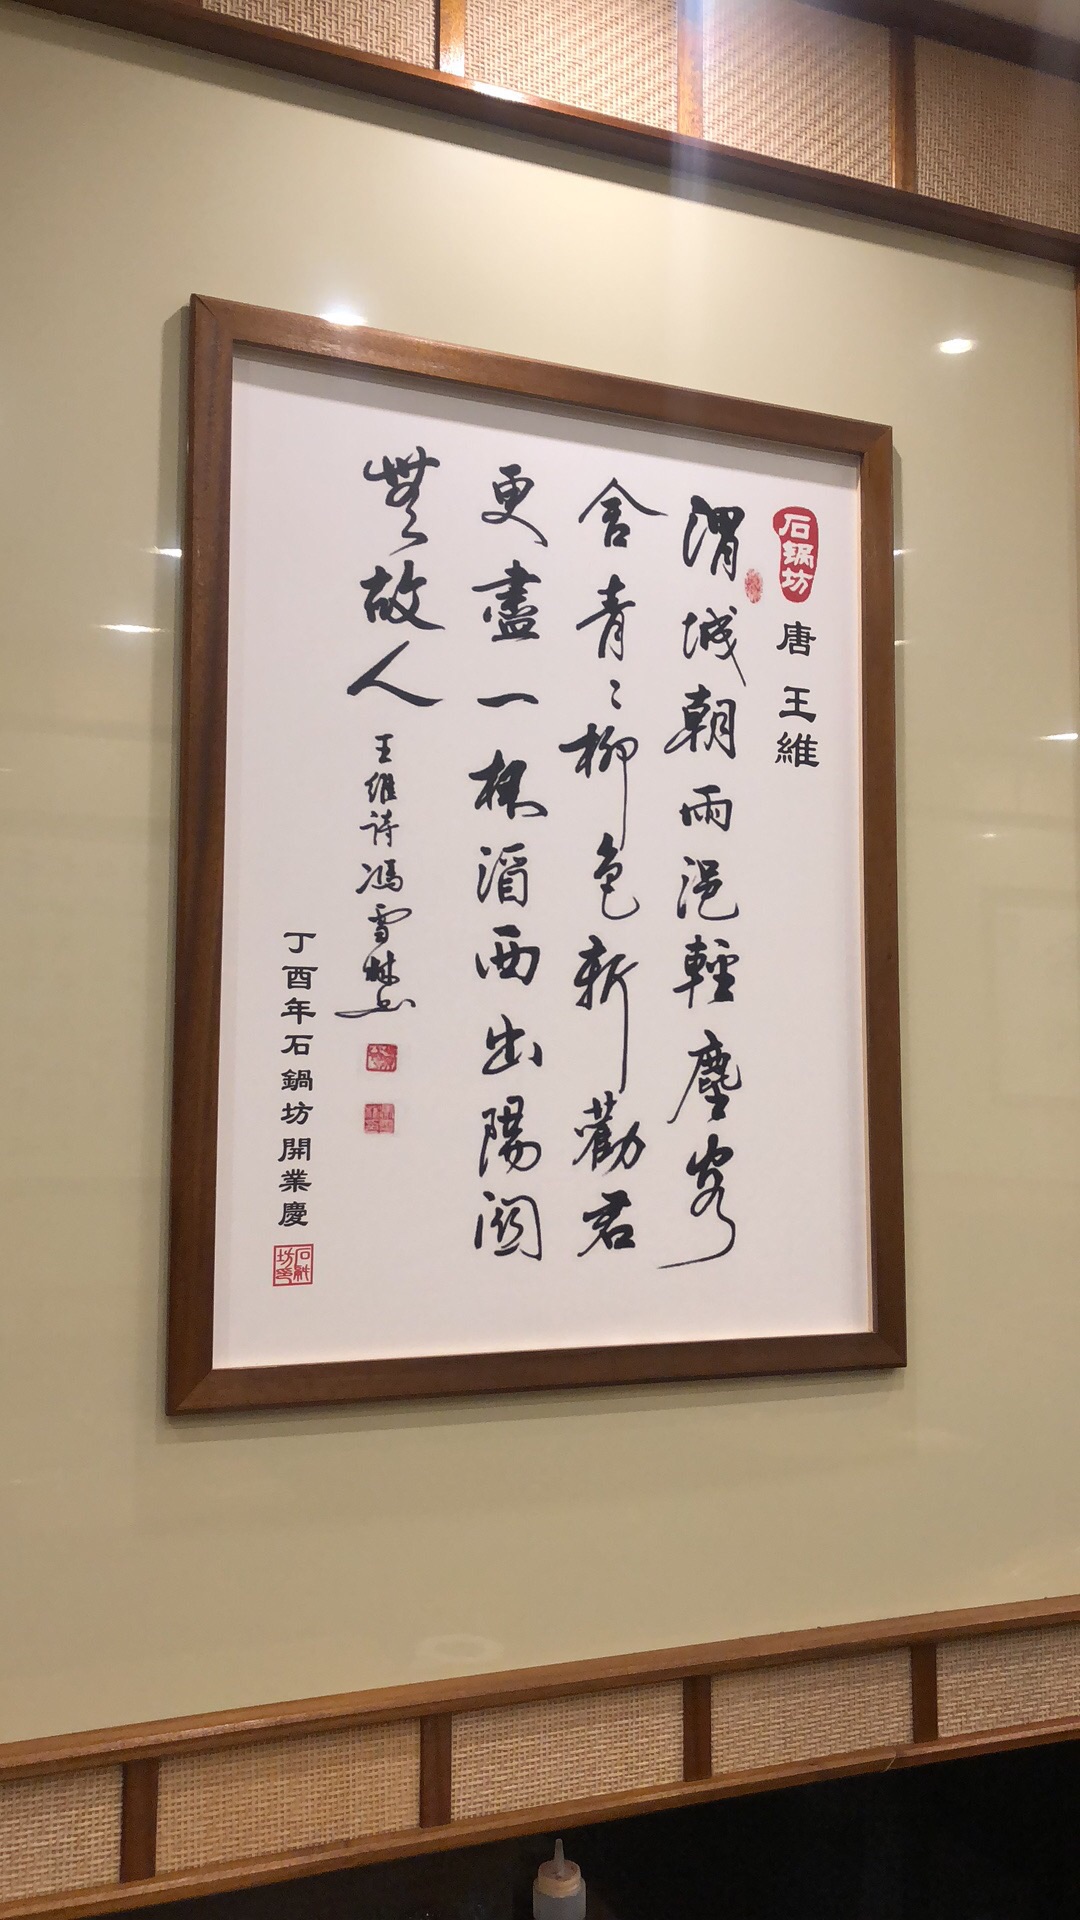 石锅坊
唐 王維
渭城朝雨浥輕塵客
舍青〻柳色新勸君
更盡一杯酒西出陽關
無故人
王維詩馮雪林书
丁酉年石鍋坊開業慶